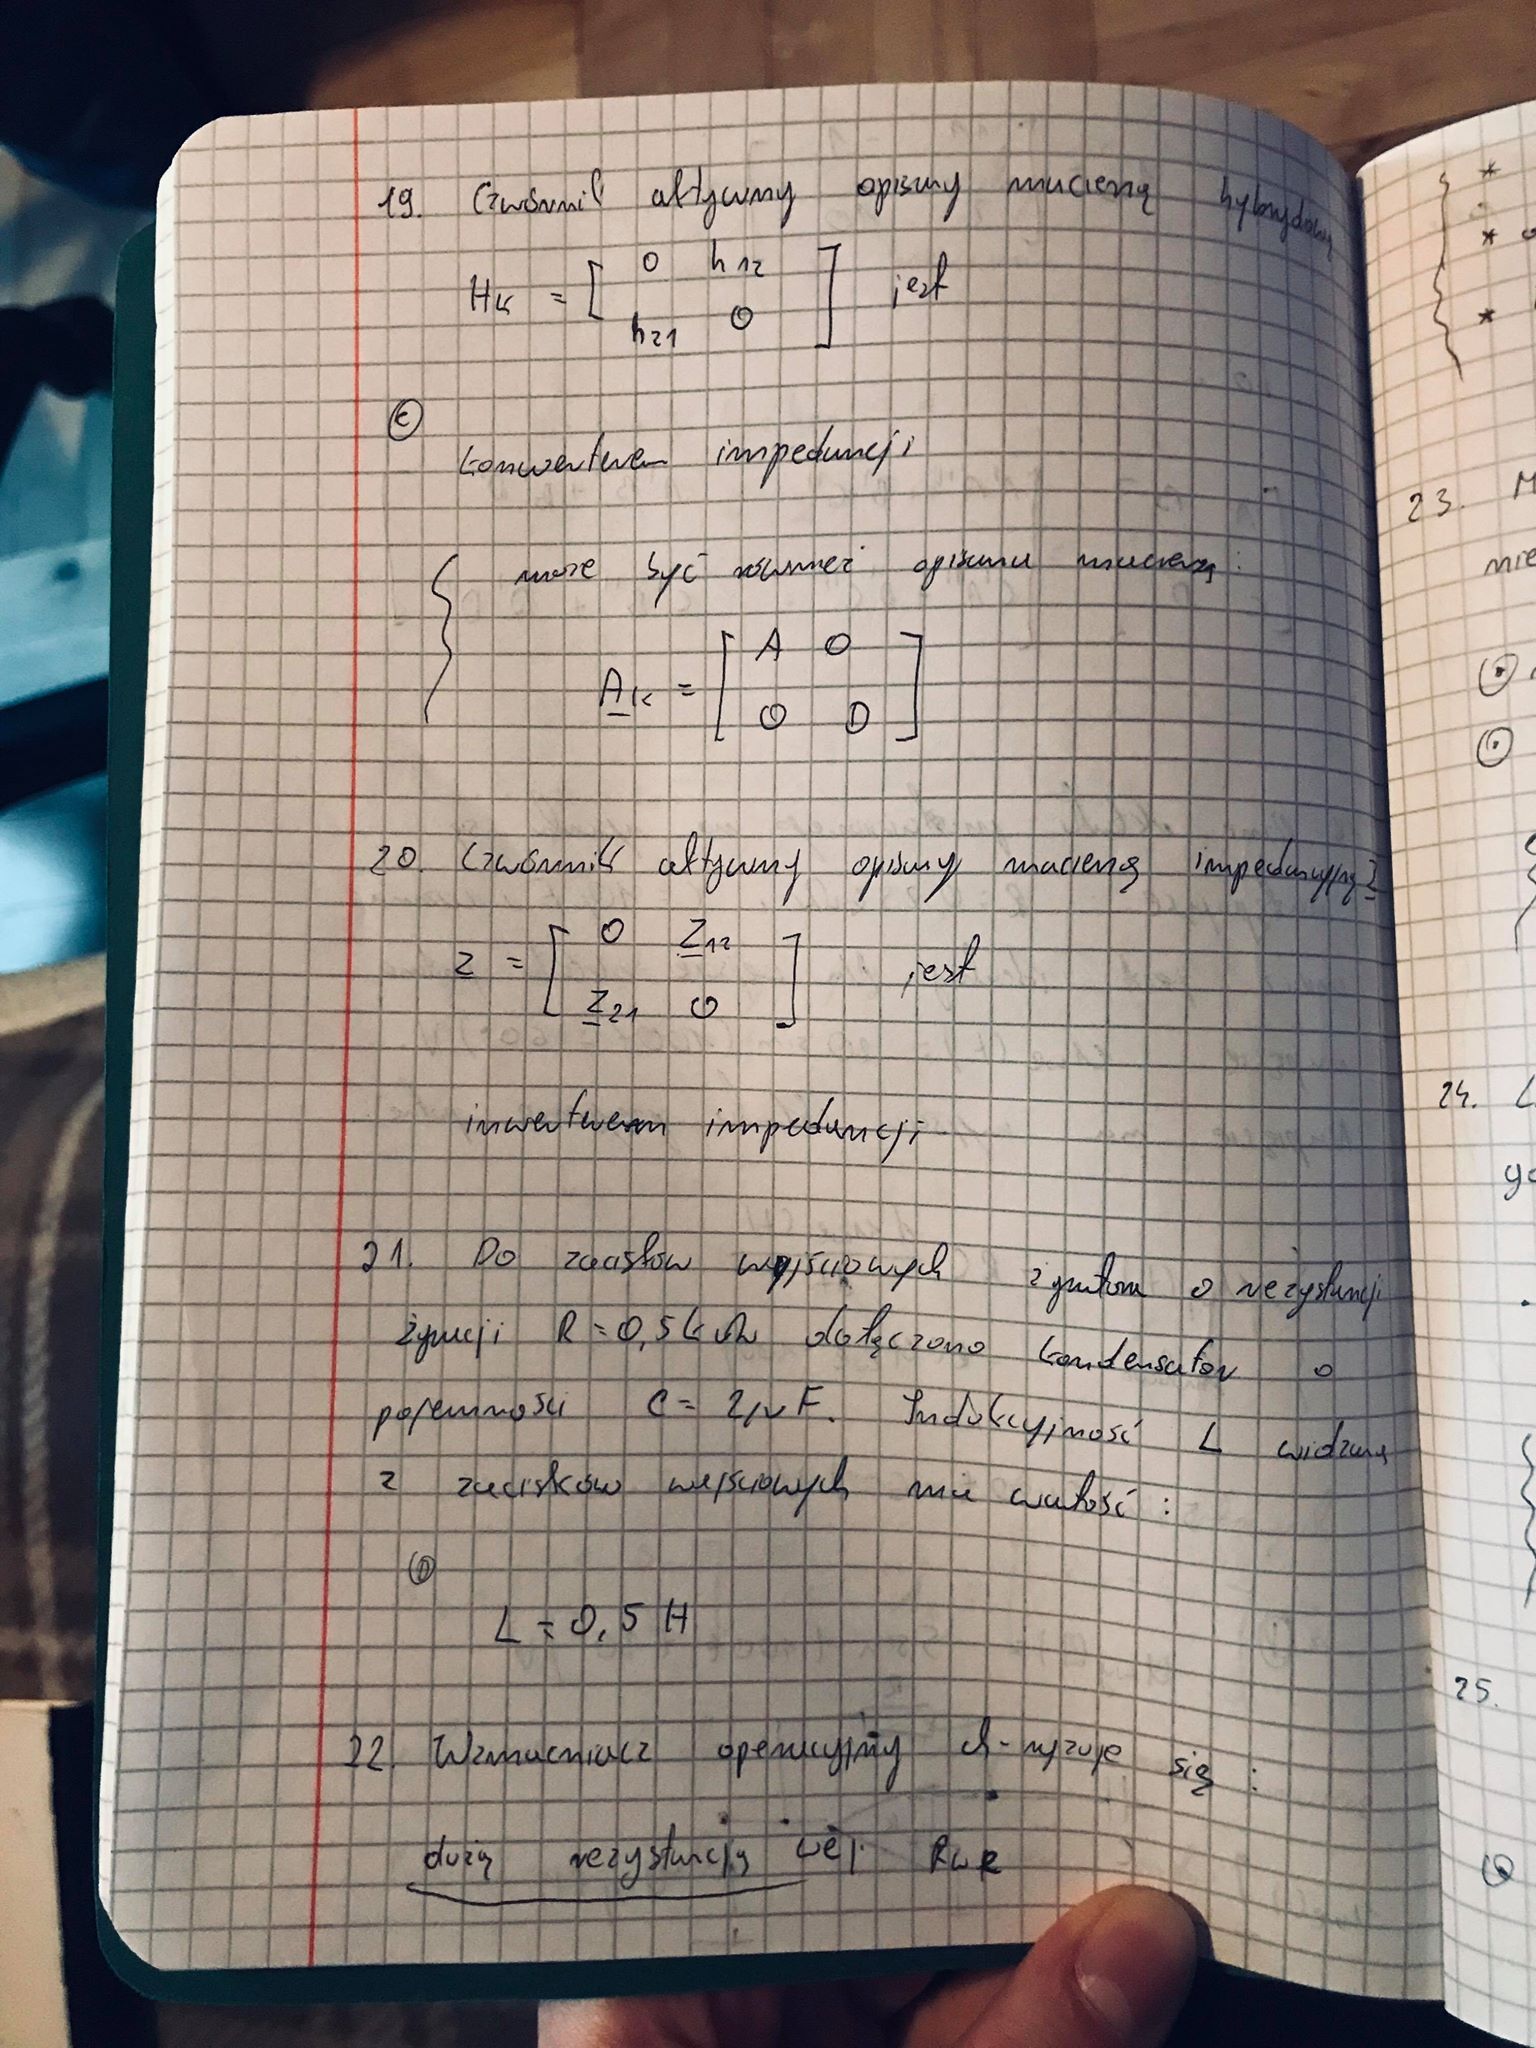 19. Czwórnik aktywny opisany macierzą hybrydową
Hk = [ 0 h12
h21 0 ] jest
c
konwerterem impedancji
może być również opisana macierzą:
Ak = [ A 0
0 D ]
20. Czwórnik aktywny opisany macierzą impedancyjną Z
Z = [ 0 Z12
Z21 0 ] jest
inwerterem impedancji
21. Do zacisków wyjściowych żyratora o rezystancji
żyracji R = 0,5 kΩ dołączono kondensator o
pojemności C = 2μF. Indukcyjność L widziana
z zacisków wejściowych ma wartość:
D
L = 0,5 H
22. Wzmacniacz operacyjny ch-ryzuje się:
dużą rezystancją wej.
*
*
*
23. M
nie
24. L
25.